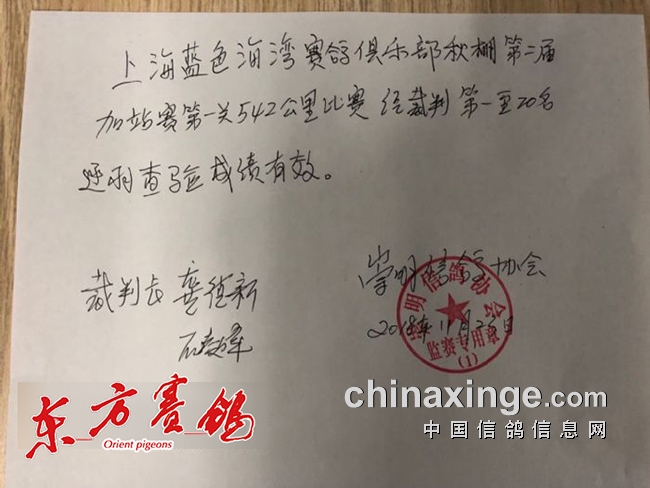 上海蓝色海湾赛鸽俱乐部秋棚第二届
加站赛第一关542公里比赛 经裁判第一至20名
验羽查验成绩有效。
裁判长 龚德新
崇明信鸽协会
崇明信鸽协会
监赛专用章
(1)
2018年11月23日
东方赛鸽
Orient pigeons
chinaxinge.com
中国信鸽信息网